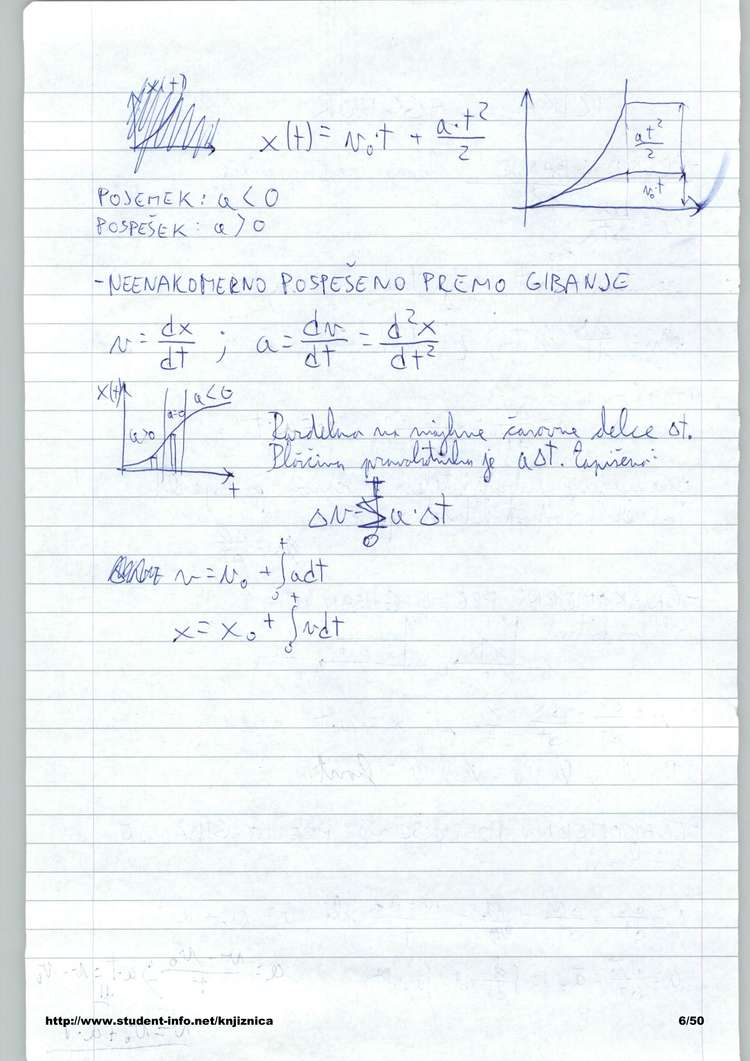 x(t) = v₀·t + a·t²/2
at²/2
v₀·t
POJEMEK: a < 0
POSPEŠEK: a > 0
- NEENAKOMERNO POSPEŠENO PREMO GIBANJE
v = dx/dt ; a = dv/dt = d²x/dt²
x(t)
a>0
a=0
a<0
t
Razdelimo na majhne časovne delce Δt.
Ploščina pravokotnika je aΔt. Zapišemo:
Δv = Σ₀ᵗ a·Δt
v = v₀ + ∫₀ᵗ adt
x = x₀ + ∫₀ᵗ vdt
http://www.student-info.net/knjiznica
6/50